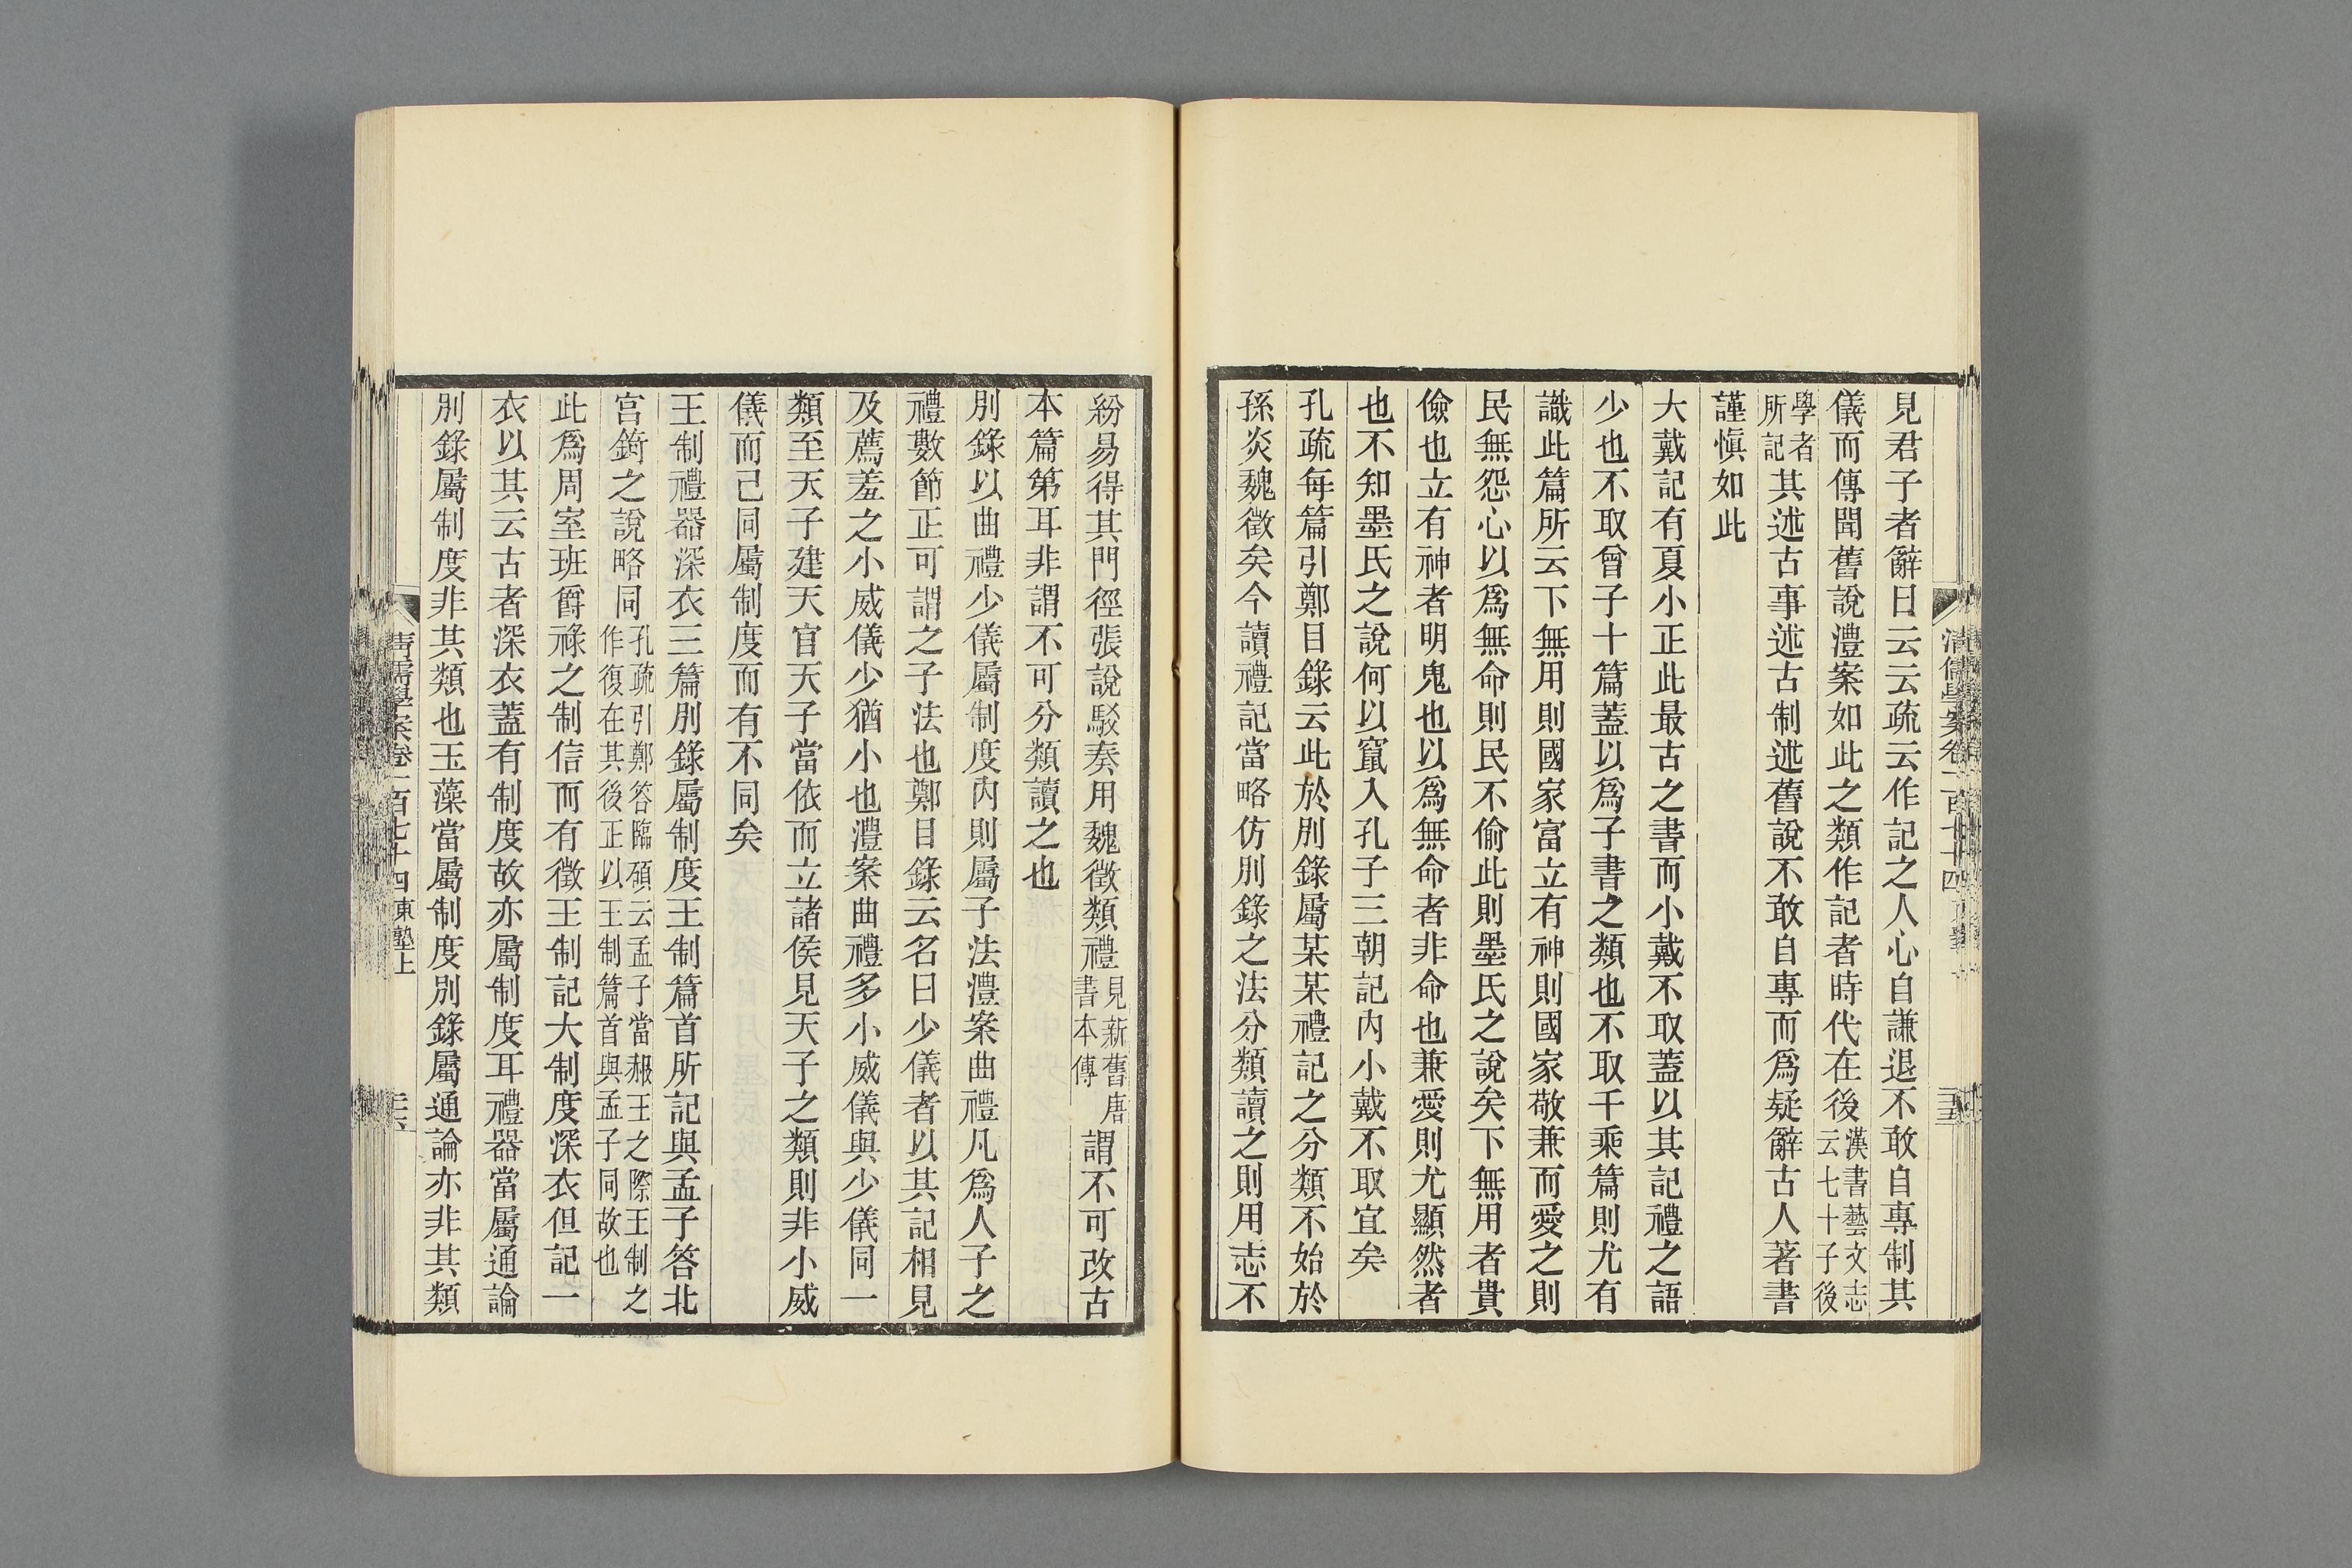 見君子者辭曰云云疏云作記之人心自謙退不敢自專制其
儀而傳聞舊說澧案如此之類作記者時代在後漢書藝文志云七十子後
學者所記其述古事述古制述舊說不敢自專而爲疑辭古人著書
謹慎如此
大戴記有夏小正此最古之書而小戴不取蓋以其記禮之語
少也不取曾子十篇蓋以爲子書之類也不取千乘篇則尤有
識此篇所云下無用則國家富立有神則國家敬兼而愛之則
民無怨心以爲無命則民不偷此則墨氏之說矣下無用者貴
儉也立有神者明鬼也以爲無命者非命也兼愛則尤顯然者
也不知墨氏之說何以竄入孔子三朝記內小戴不取宜矣
孔疏每篇引鄭目錄云此於別錄屬某某禮記之分類不始於
孫炎魏徵矣今讀禮記當略仿別錄之法分類讀之則用志不
紛易得其門徑張說駁奏用魏徵類禮見新舊唐書本傳謂不可改古
本篇第耳非謂不可分類讀之也
別錄以曲禮少儀屬制度內則屬子法澧案曲禮凡爲人子之
禮數節正可謂之子法也鄭目錄云名曰少儀者以其記相見
及薦羞之小威儀少猶小也澧案曲禮多小威儀與少儀同一
類至天子建天官天子當依而立諸侯見天子之類則非小威
儀而已同屬制度而有不同矣
王制禮器深衣三篇別錄屬制度王制篇首所記與孟子答北
宮錡之說略同孔疏引鄭答臨碩云孟子當赧王之際王制之作復在其後正以王制篇首與孟子同故也
此爲周室班爵祿之制信而有徵王制記大制度深衣但記一
衣以其云古者深衣蓋有制度故亦屬制度耳禮器當屬通論
別錄屬制度非其類也玉藻當屬制度別錄屬通論亦非其類
清儒學案卷一百七十四東塾上